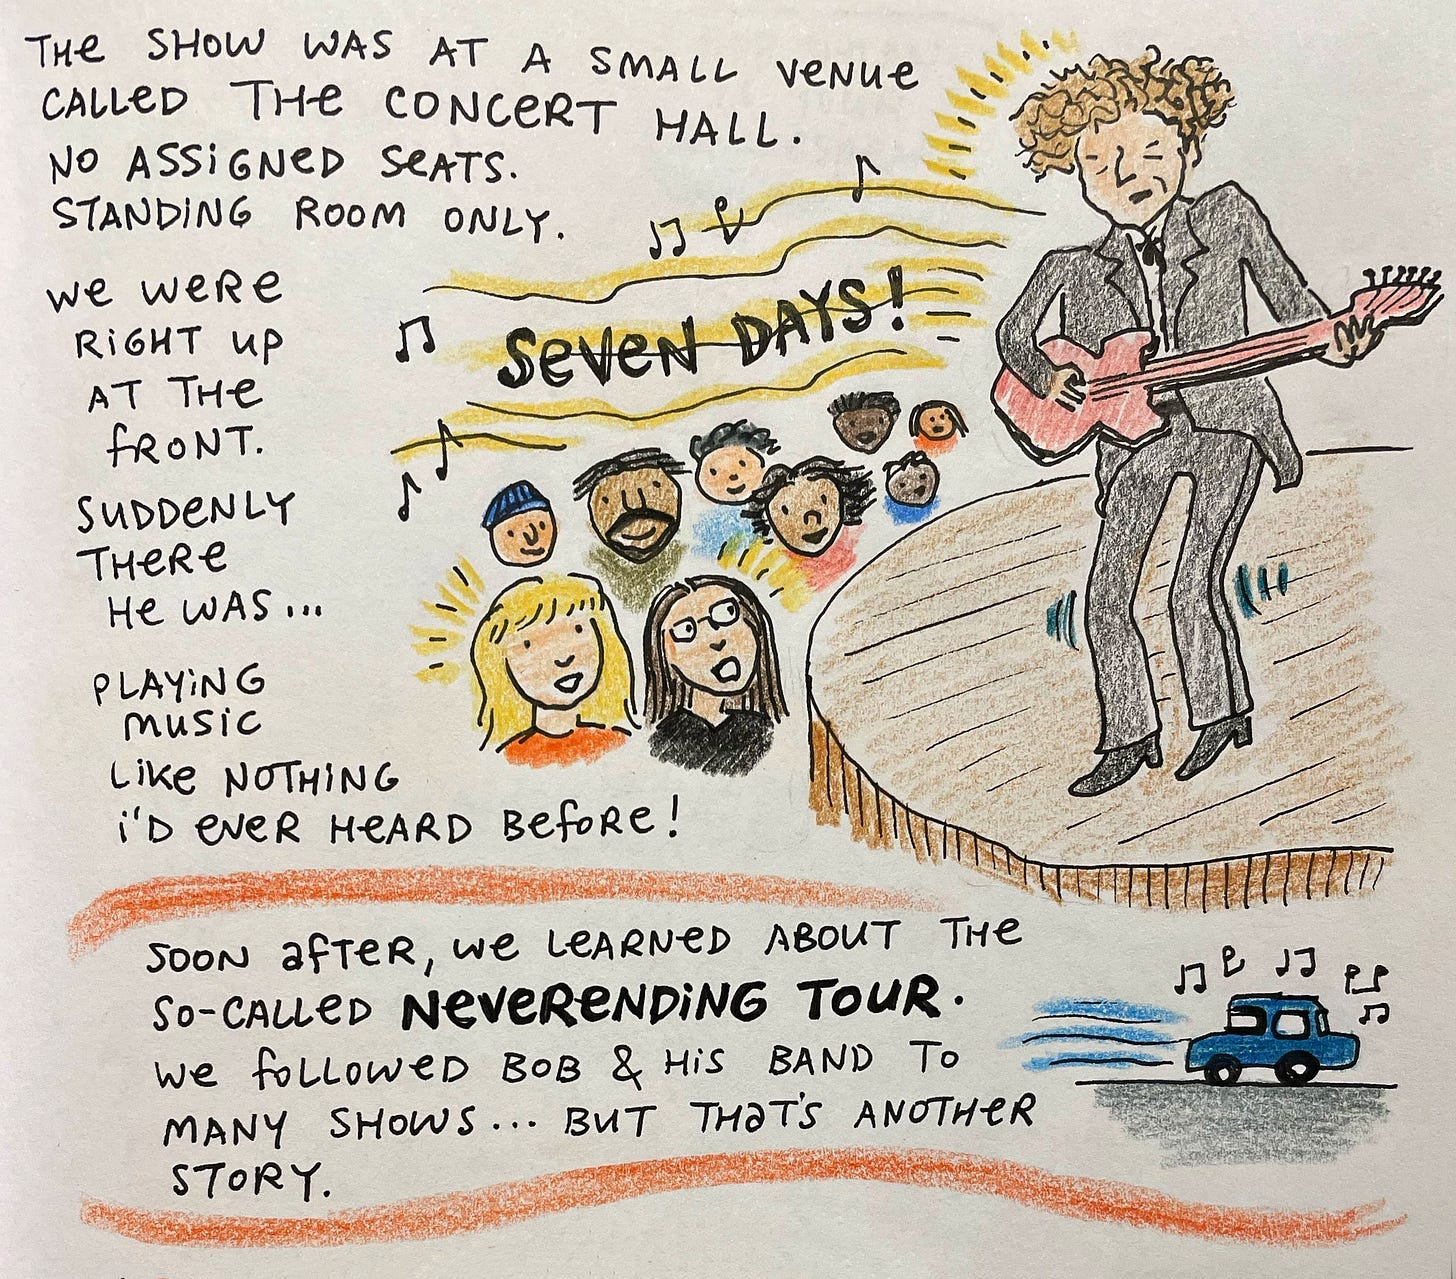 THE SHOW WAS AT A SMALL VENUE
CALLED THE CONCERT HALL.
NO ASSIGNED SEATS.
STANDING ROOM ONLY.
WE WERE
RIGHT UP
AT THE
FRONT.
SUDDENLY
THERE
HE WAS...
PLAYING
MUSIC
LIKE NOTHING
I'D EVER HEARD BEFORE!
SEVEN DAYS!
SOON AFTER, WE LEARNED ABOUT THE
SO-CALLED NEVERENDING TOUR.
WE FOLLOWED BOB & HIS BAND TO
MANY SHOWS... BUT THAT'S ANOTHER
STORY.